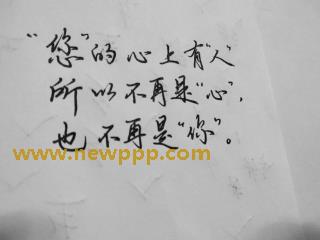 “您”的心上有“人”
所以不再是“心”，
也不再是“你”。
www.newppp.com